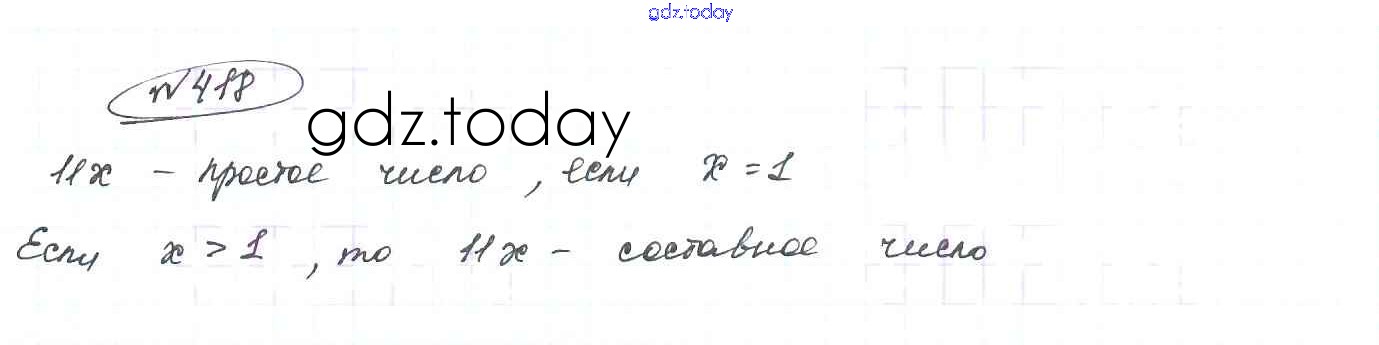 gdz.today
№418
gdz.today
11x – простое число, если x = 1
Если x > 1, то 11x – составное число